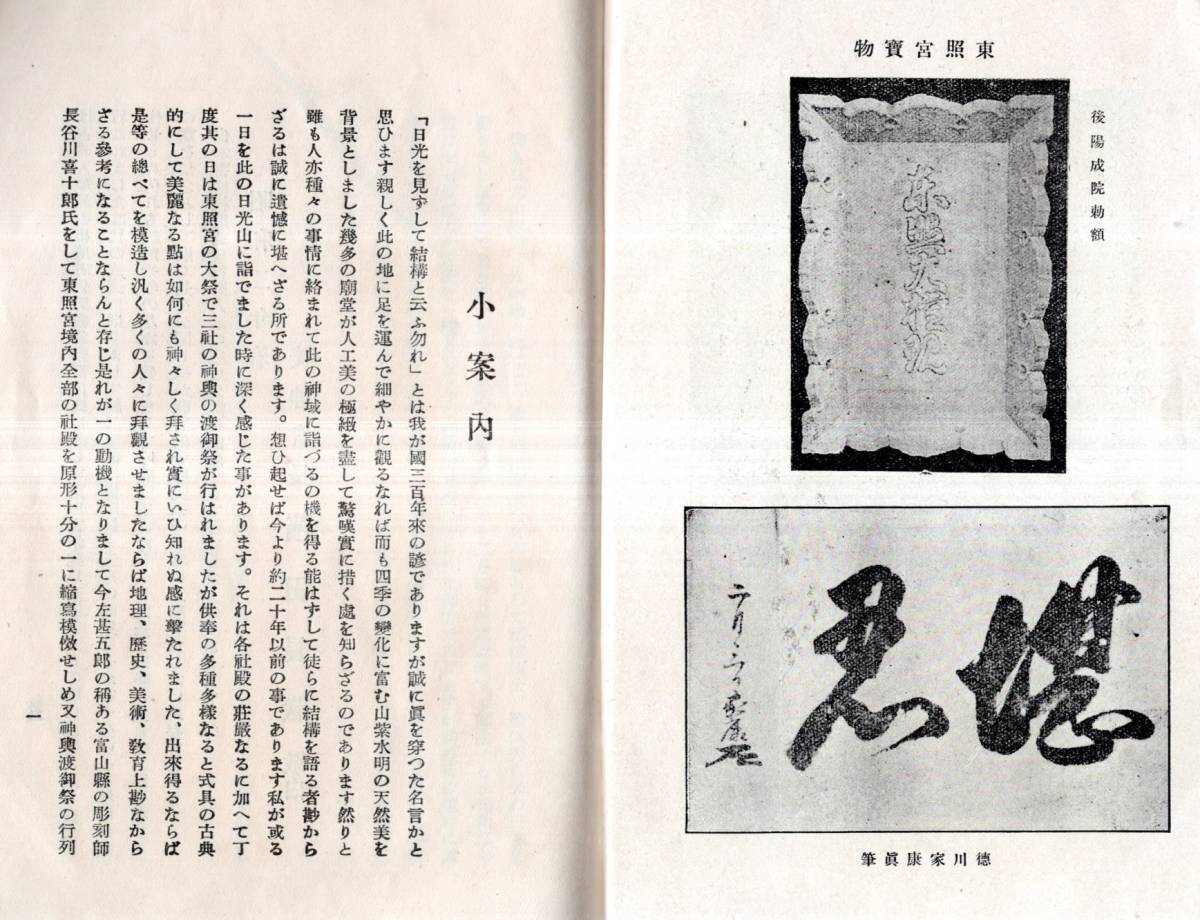 東照宮寶物
後陽成院勅額
東照大権現
堪忍
德川家康眞筆
小案內
「日光を見ずして結構と云ふ勿れ」とは我が國三百年來の諺でありますが誠に眞を穿つた名言かと
思ひます親しく此の地に足を運んで細やかに觀るなれば而も四季の變化に富む山紫水明の天然美を
背景としました幾多の廟堂が人工美の極緻を盡して驚嘆實に措く處を知らざるのであります然りと
雖も人亦種々の事情に絡まれて此の神域に詣づるの機を得る能はずして徒らに結構を語る者尠から
ざるは誠に遺憾に堪へざる所であります。想ひ起せば今より約二十年以前の事であります私が或る
一日を此の日光山に詣でました時に深く感じた事があります。それは各社殿の莊嚴なるに加へて丁
度其の日は東照宮の大祭で三社の神輿の渡御祭が行はれましたが供奉の多種多樣なると式具の古典
的にして美麗なる點は如何にも神々しく拜され實にいひ知れぬ感に擊たれました、出來得るならば
是等の總べてを模造し汎く多くの人々に拜觀させましたならば地理、歷史、美術、敎育上尠なから
ざる參考になることならんと存じ是れが一の動機となりまして今左甚五郎の稱ある富山縣の彫刻師
長谷川喜十郎氏をして東照宮境內全部の社殿を原形十分の一に縮寫模倣せしめ又神輿渡御祭の行列
一